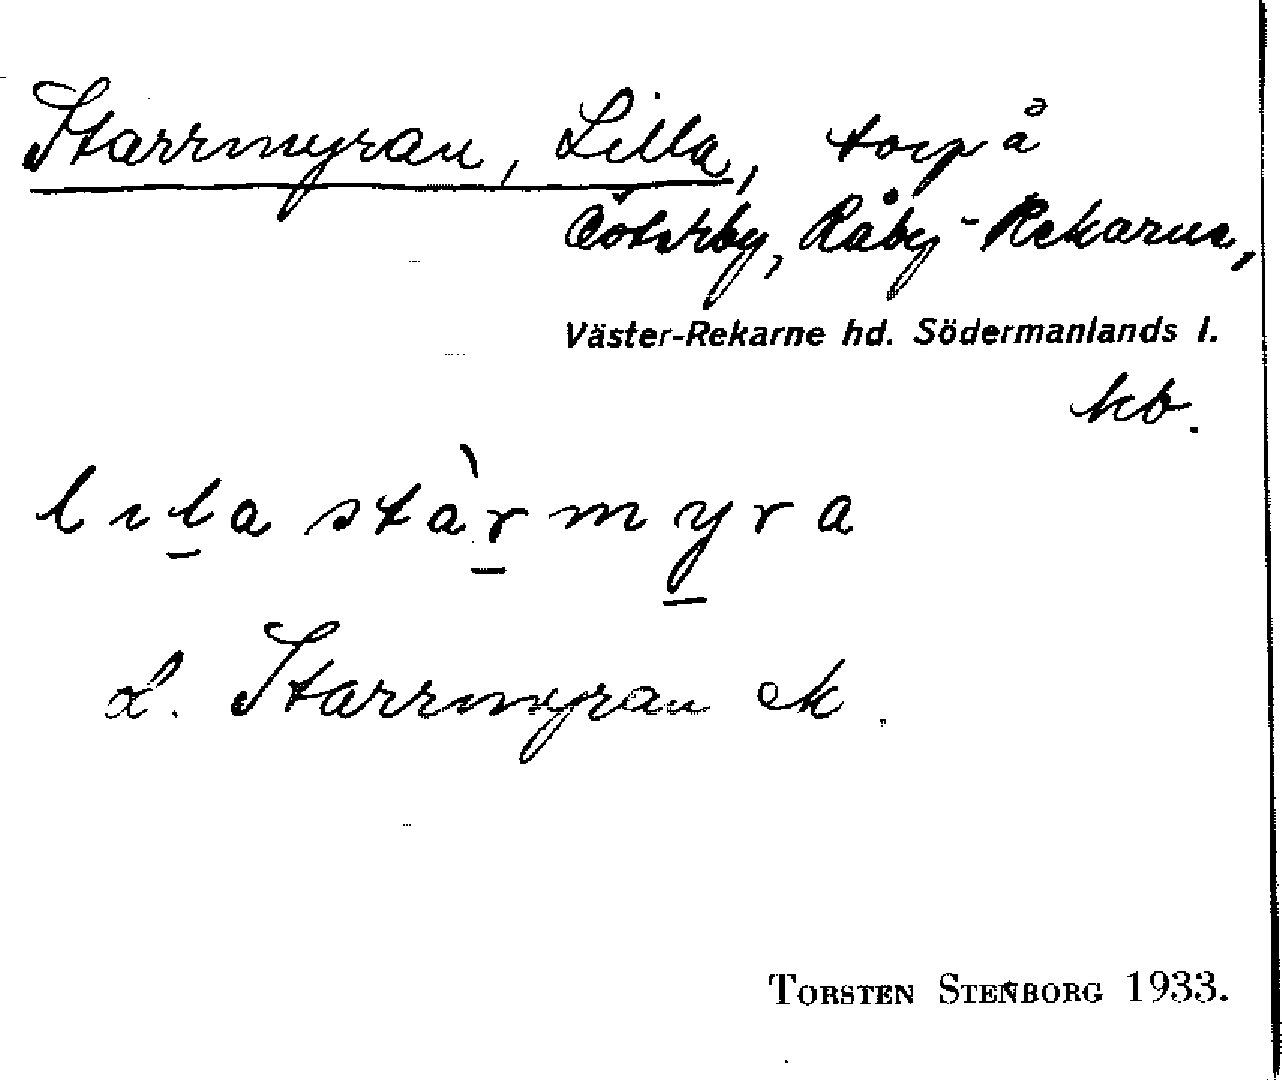 Starrmyran, Lilla, torp å
Råby-Rekarne,
Väster-Rekarne hd. Södermanlands l.
kb.
lila stàrmyra
L. Starrmyran ek.
TORSTEN STENBORG 1933.